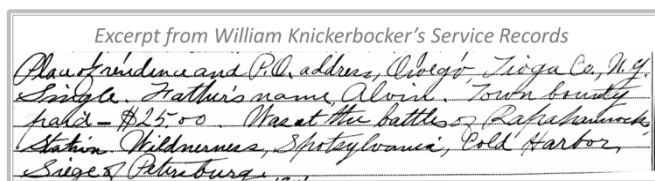 Excerpt from William Knickerbocker's Service Records
Place of residence and P.O. address, Owego Tioga Co., N.Y.
Single. Father's name, Alvin. Town bounty
paid - $25.00. Was at the battles of Rapahannock
Station. Wilderness, Spotsylvania, Cold Harbor,
Siege of Petersburg.